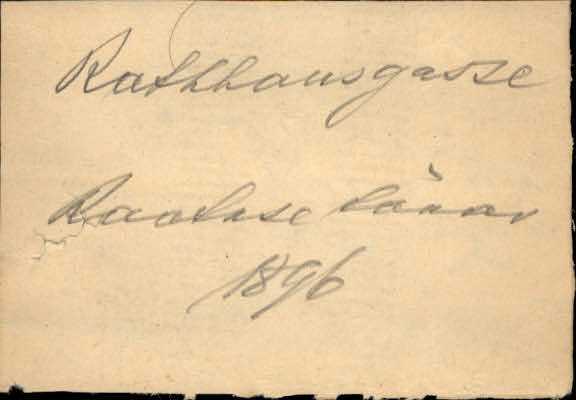 Rathhausgasse
Raatuse tänav
1896